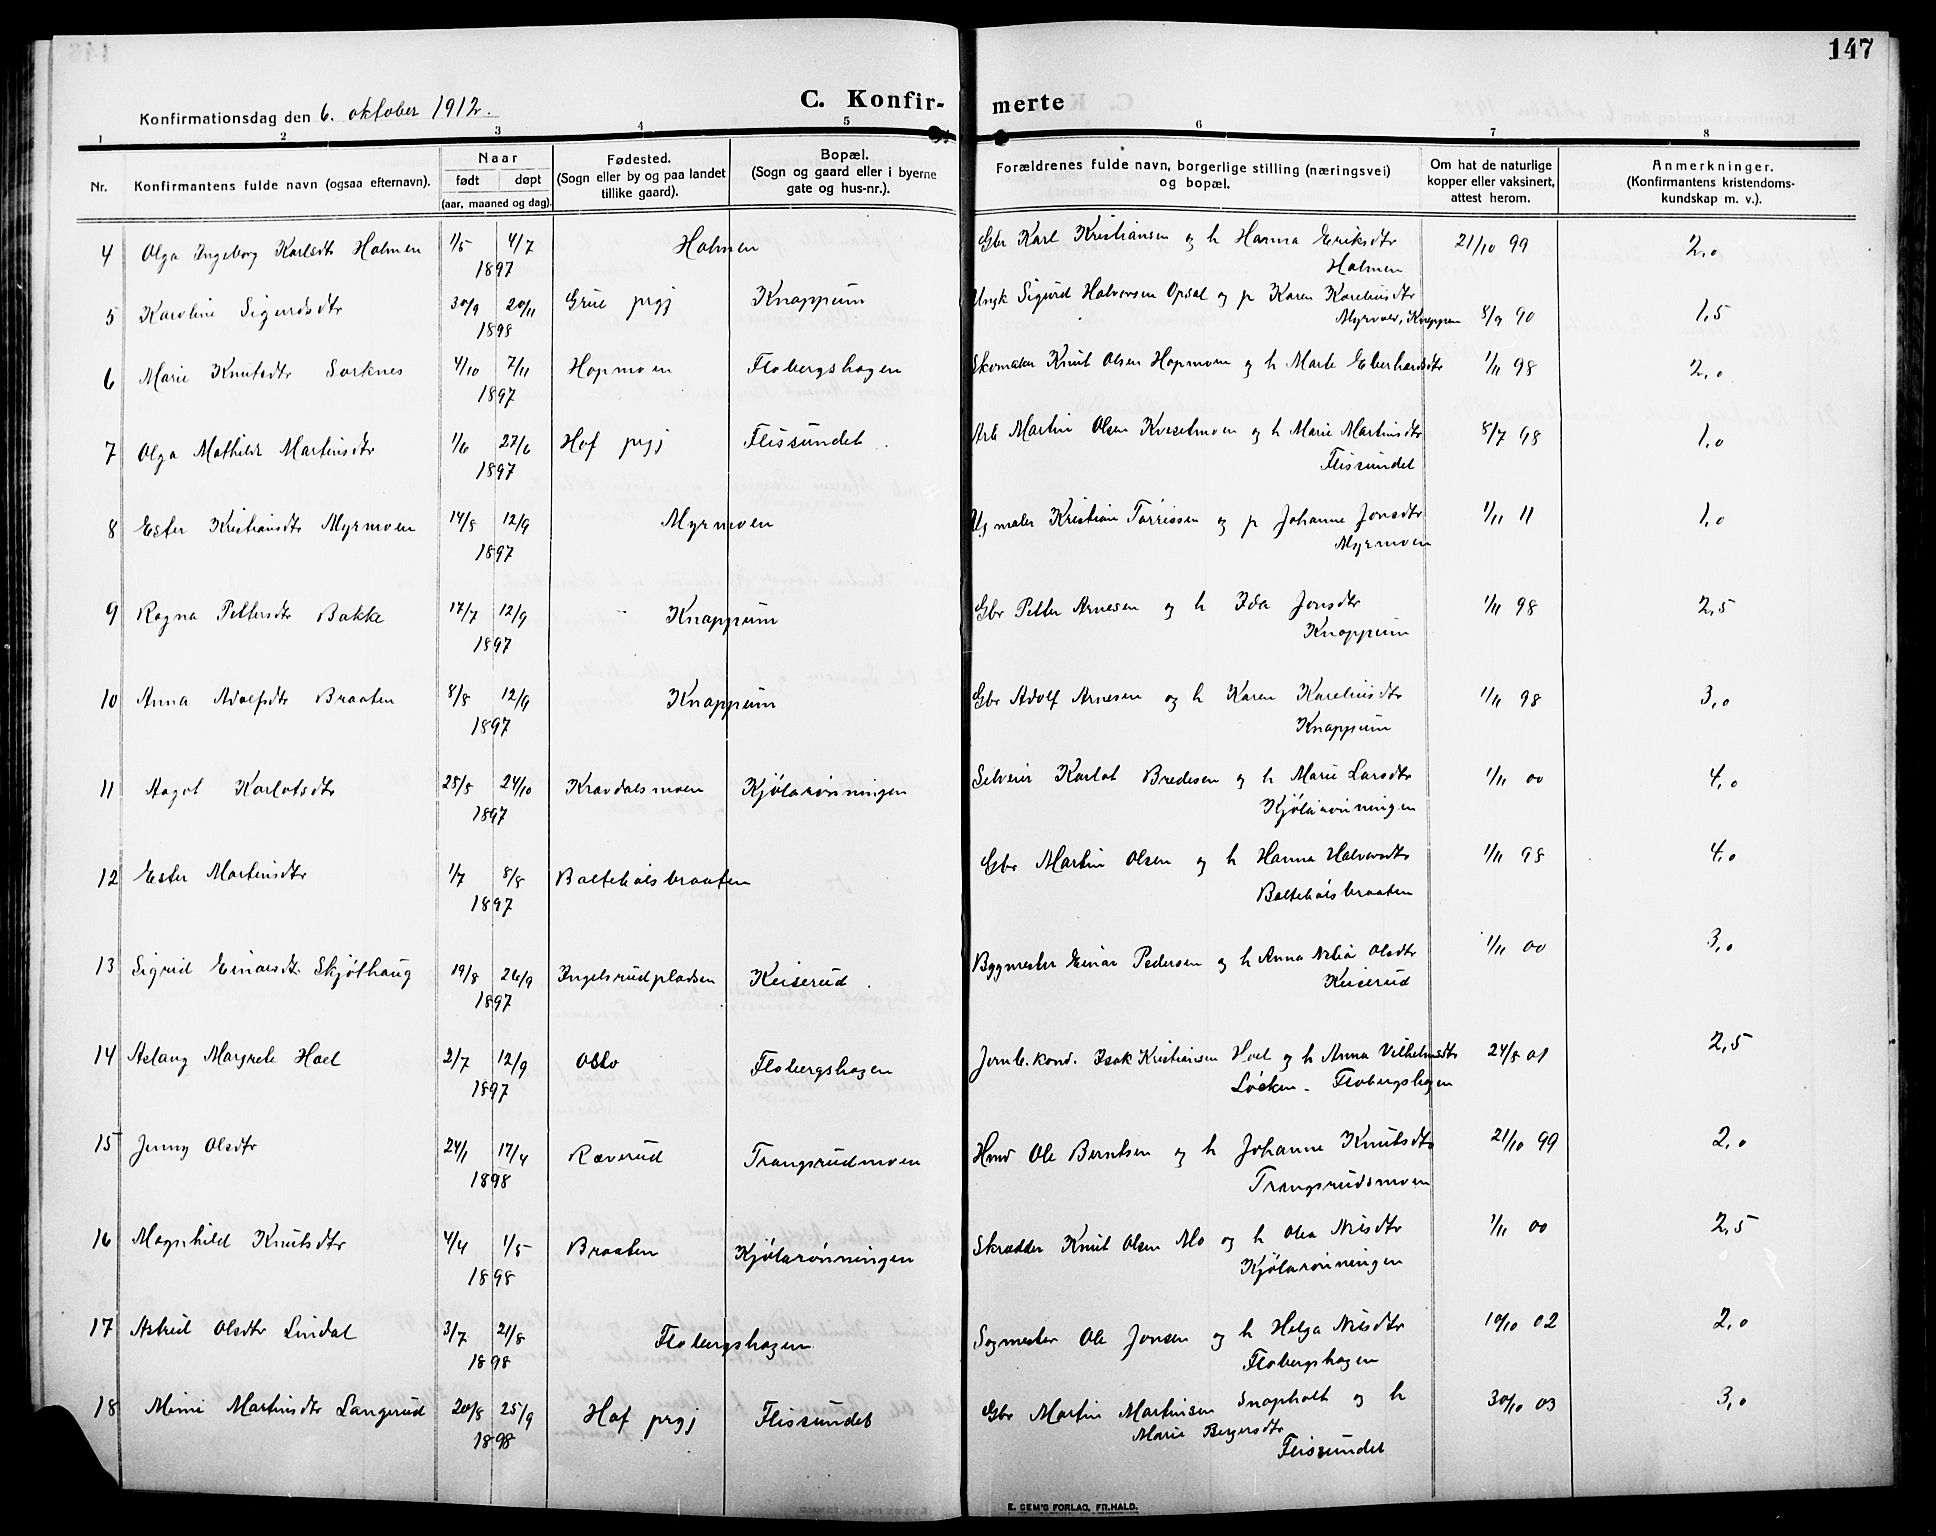 147
Konfirmationsdag den 6. oktober 1912. C. Konfir- merte
1 2 3 4 5 6 7 8
Nr. Konfirmantens fulde navn (ogsaa efternavn). Naar født døpt (aar, maaned og dag). Fødested. (Sogn eller by og paa landet tillike gaard). Bopæl. (Sogn og gaard eller i byerne gate og hus-nr.). Forældrenes fulde navn, borgerlige stilling (næringsvei) og bopæl. Om hat de naturlige kopper eller vaksinert, attest herom. Anmerkninger. (Konfirmantens kristendoms- kundskap m. v.).
4 Olga Ingeborg Karlsdtr Holmen 1/5 4/7 1897 Holmen Gbr Karl Kristiansen og h Hanna Eriksdtr 21/10 99 2,0
Holmen
5 Karoline Sigurdsdtr 30/9 20/11 1898 Grue prgj Knappum Ungk Sigurd Halvorsen Opsal og p Karen Kareliusdtr 8/9 90 1,5
Myrvold, Knappum
6 Marie Knutsdtr Sorknes 4/10 7/11 1897 Hopmoen Flobergshagen Skomaker Knut Olsen Hopmoen og h Marte Eberhardsdtr 1/11 98 2,0
7 Olga Mathilde Martinsdtr 1/6 27/6 1897 Hof prgj Flissundet Arb Martin Olsen og h Marie Martinsdtr 8/7 98 1,0
Flissundet
8 Ester Kristiansdtr Myrmoen 14/8 12/9 1897 Myrmoen Ug maler Kristian Torrissen og p Johanne Jonsdtr 1/11 11 1,0
Myrmoen
9 Ragna Pettersdtr Bakke 17/7 12/9 1897 Knappum Gbr Petter Arnesen og h Ida Jonsdtr 1/11 98 2,5
Knappum
10 Anna Adolfsdtr Braaten 8/8 12/9 1897 Knappum Gbr Adolf Arnesen og h Karen Kareliusdtr 1/11 98 3,0
Knappum
11 Aagot Karlotsdtr 25/8 24/10 1897 Kravdalsmoen Kjølarønningen Selveier Karlot Bredesen og h Marie Larsdtr 1/11 00 4,0
Kjølarønningen
12 Ester Martinsdtr 1/7 8/8 1897 Balteholsbraaten Gbr Martin Olsen og h Hanna Halvorsdtr 1/11 98 4,0
Balteholsbraaten
13 Sigrid Einarsdtr. Skjølhaug 19/8 26/9 1897 Ingelsrudpladsen Keiserud Byggmester Einar Pedersen og h Anna Olsdtr 1/11 00 3,0
Keiserud
14 Aslaug Margrete Hoel 2/7 12/9 1897 Oslo Flobergshagen Jernb. kond. Isak Kristiansen Hoel og h Anna Vilhelmsdtr 24/8 01 2,5
Løken - Flobergshagen
15 Jenny Olsdtr 24/1 17/4 1898 Ræverud Trangsrudmoen Hmd Ole Berntsen og h Johanne Knutsdtr 21/10 99 2,0
Trangsrudsmoen
16 Magnhild Knutsdtr 4/4 1/5 1898 Braaten Kjølarønningen Skrædder Knut Olsen Mo og h Olea Nilsdtr 1/11 00 2,5
Kjølarønningen
17 Astrid Olsdtr Lindal 3/7 21/8 1898 Flobergshagen Sagmester Ole Jonsen og h Helga Nilsdtr 10/10 02 2,0
Flobergshagen
18 Mimi Martinsdtr Langerud 20/8 25/9 1898 Hof prgj Flissundet Gbr Martin Martinsen Snapholt og h 30/10 03 3,0
Marie Bergersdtr
Flissundet
E. SEM'S FORLAG, FR.HALD.